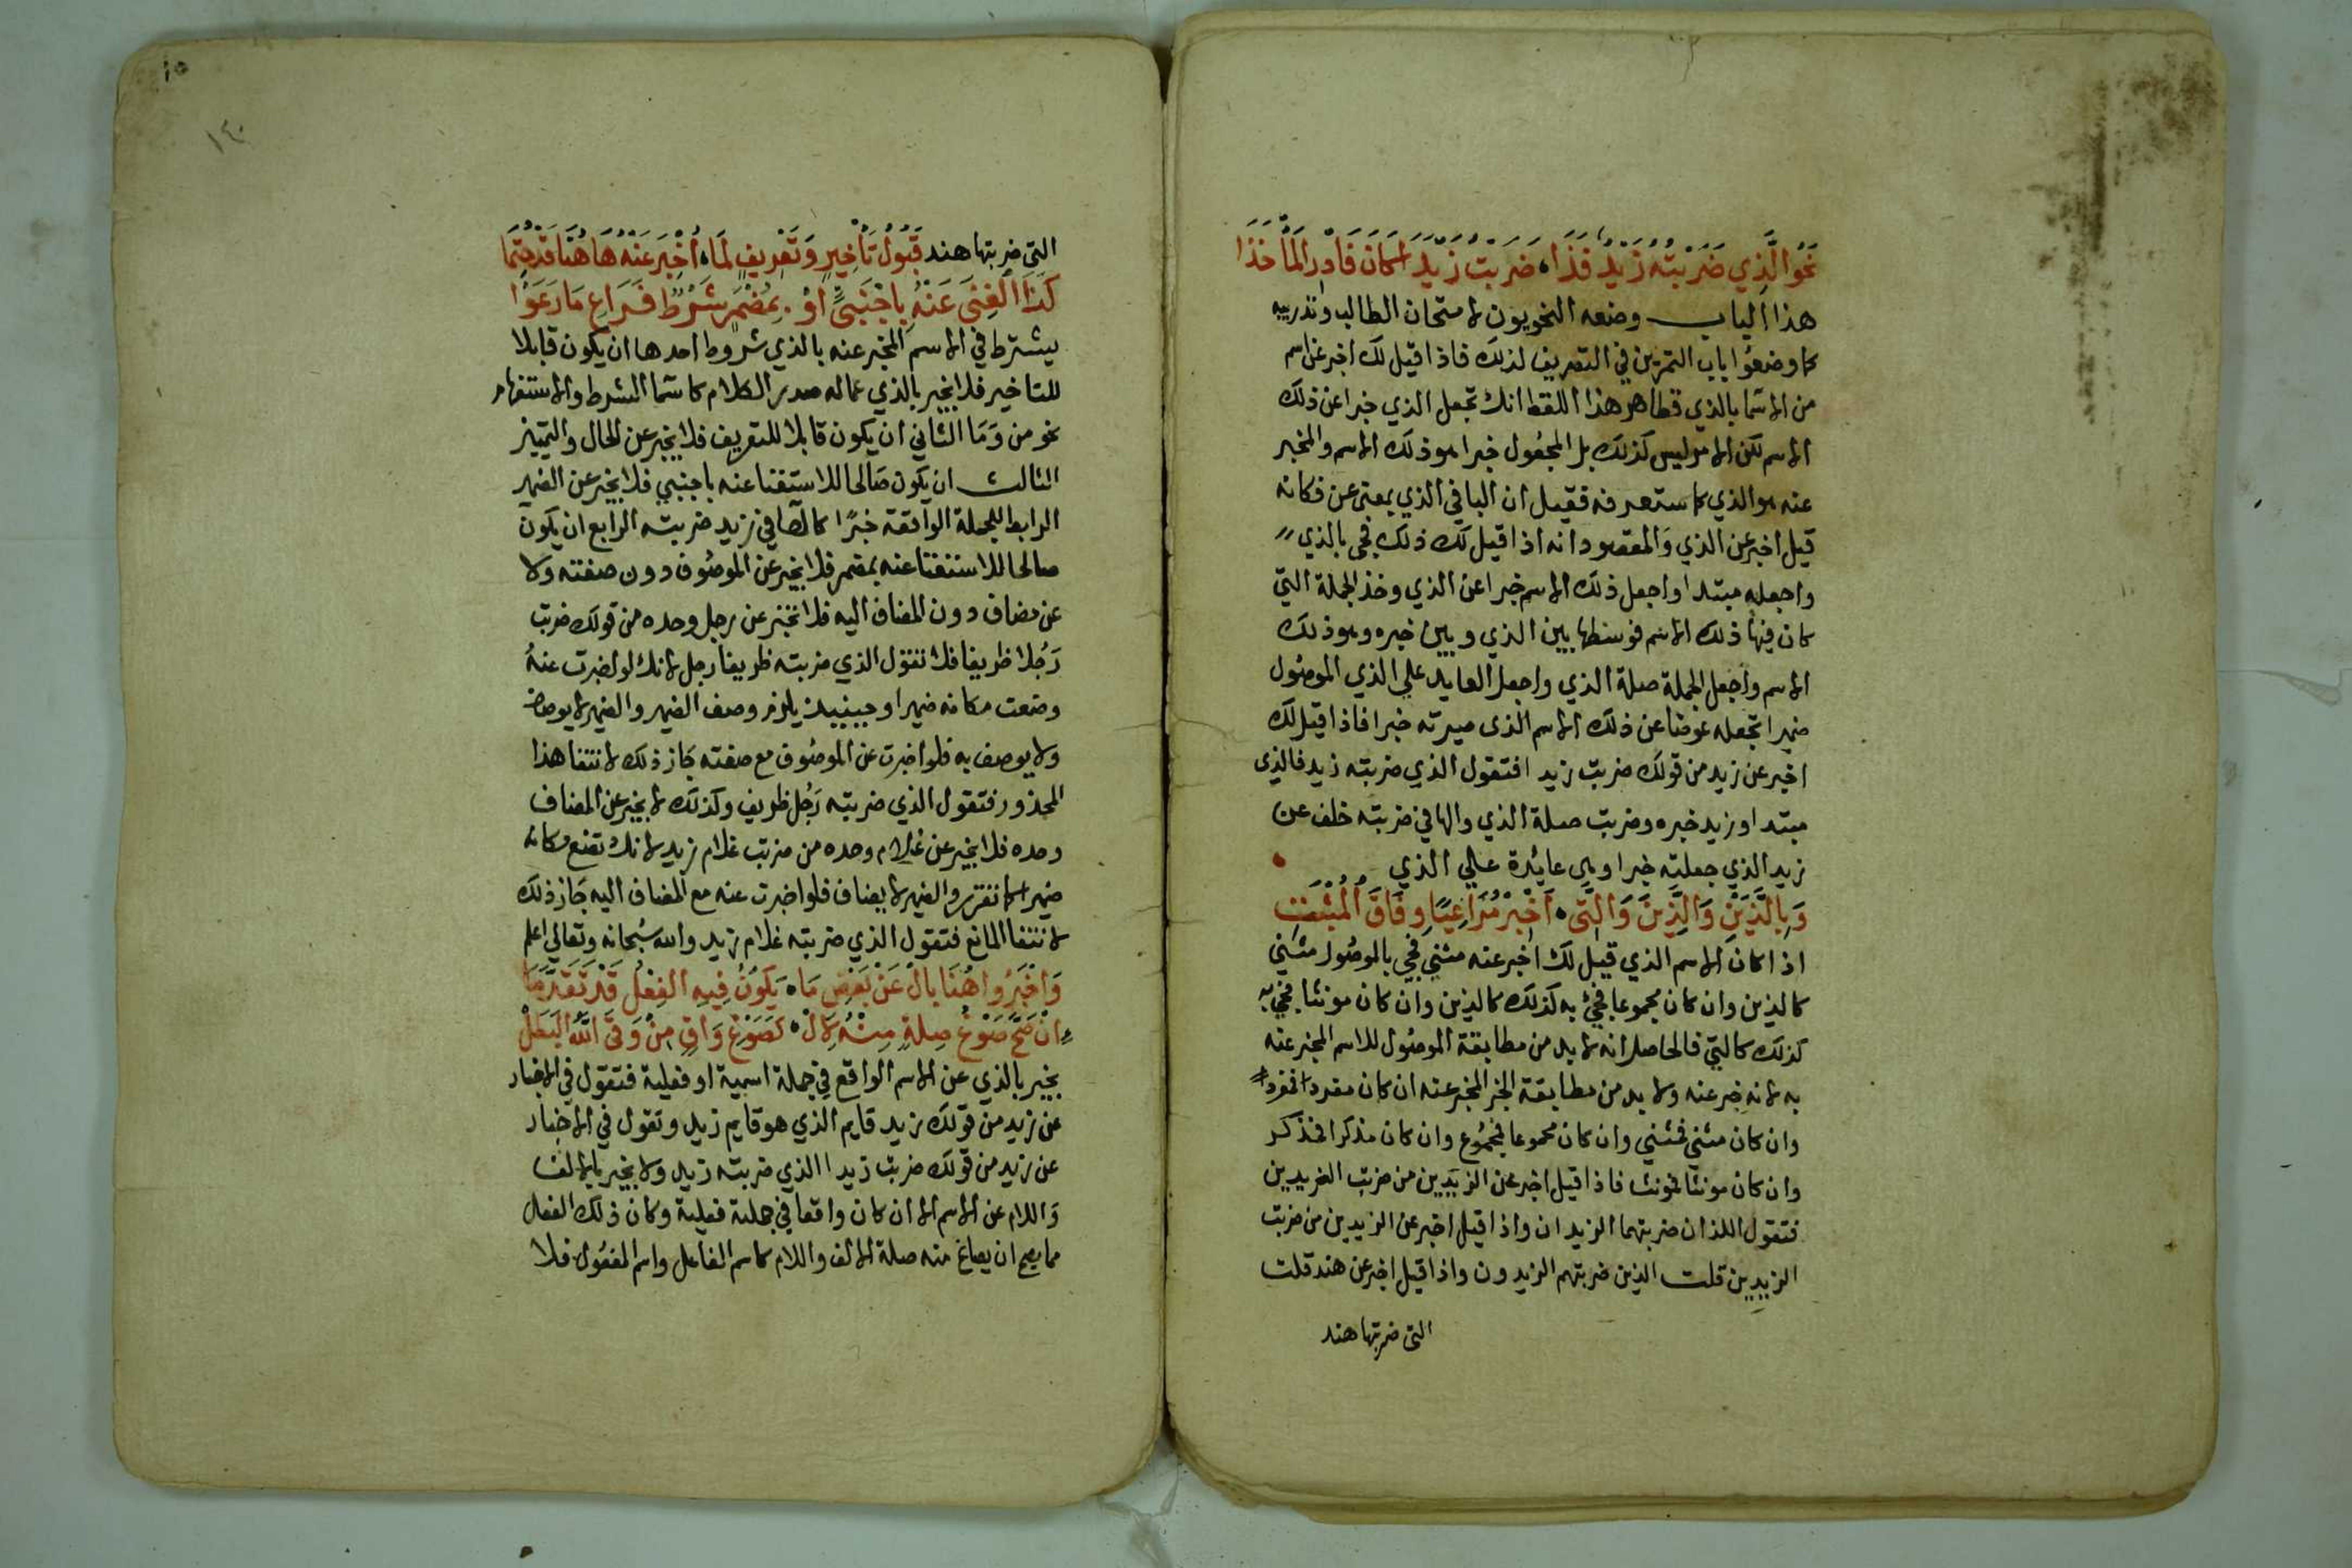 نَحْوُ الَّذِي ضَرَبْتُهُ زَيْدٌ فَذَا ، ضَرَبْتُ زَيْدًا كَانَ فَادْرِ الْمَأْخَذَا
هذا الباب وضعه النحويون لامتحان الطالب وتدريبه
كما وضعوا باب التمرين في التصريف لذلك فاذا قيل لك اخبر عن اسم
من الاسما بالذي فظاهر هذا اللفظ انك تجعل الذي خبرا عن ذلك
الاسم لكن الامر ليس كذلك بل المجعول خبرا هو ذلك الاسم والمخبر
عنه هو الذي كما ستعرفه فقيل ان البا في الذي بمعنى عن فكانه
قيل اخبر عن الذي والمقصود انه اذا قيل لك ذلك فجى بالذي
واجعله مبتدا واجعل ذلك الاسم خبرا عن الذي وخذ الجملة التي
كان فيها ذلك الاسم فوسطها بين الذي وبين خبره وهو ذلك
الاسم واجعل الجملة صلة الذي واجعل العايد علي الذي الموصول
ضميرا تجعله عوضا عن ذلك الاسم الذى صيرته خبرا فاذا قيل لك
اخبر عن زيد من قولك ضربت زيدا فتقول الذي ضربته زيد فالذى
مبتدا وزيد خبره وضربت صلة الذي والها في ضربته خلف عن
زيد الذي جعلته خبرا وهى عائدة علي الذي
وَبِاللَّذَيْنِ وَالَّذِينَ وَالَّتِي ، أَخْبِرْ مُرَاعِيًا وِفَاقَ الْمُثْبَتِ
اذا كان الاسم الذي قيل لك اخبر عنه مثني فجي بالموصول مثني
كالذين وان كان مجموعا فجئ به كذلك كالذين وان كان مونثا فجئ به
كذلك كالتي فالحاصل انه لابد من مطابقة الموصول للاسم المخبر عنه
به لانه خبر عنه ولابد من مطابقة الخبر المخبر عنه ان كان مفردا فمفرد
وان كان مثني فمثني وان كان مجموعا فمجموع وان كان مذكرا فمذكر
وان كان مونثا فمونث فاذا قيل اخبر عن الزيدين من ضربت الزيدين
فتقول اللذان ضربتهما الزيدان واذا قيل اخبر عن الزيدين من ضربت
الزيدين قلت الذين ضربتهم الزيدون واذا قيل اخبر عن هند قلت
التى ضربتها هند
١٤٠
التى ضربتها هند قَبُولُ تَأْخِيرٍ وَتَعْرِيفٍ لِمَا ، أُخْبِرَ عَنْهُ هَا هُنَا قَدْ حُتِمَا
كَذَا الْغِنَى عَنْهُ بِأَجْنَبِيٍّ أَوْ . بِمُضْمَرٍ شَرْطٌ فَرَاعِ مَا رَعَوْا
يشترط في الاسم المخبر عنه بالذي شروط احدها ان يكون قابلا
للتاخير فلا يخبر بالذي عما له صدر الكلام كاسما الشرط والاستفهام
نحو من وما الثاني ان يكون قابلا للتعريف فلا يخبر عن الحال والتمييز
الثالث ان يكون صالحا للاستغنا عنه باجنبي فلا يخبر عن الضمير
الرابط للجملة الواقعة خبرا كالها في زيد ضربته الرابع ان يكون
صالحا للاستغنا عنه بمضمر فلا يخبر عن الموصوف دون صفته ولا
عن مضاف دون المضاف اليه فلا تخبر عن رجل وحده من قولك ضربت
رجلا ظريفا فلا تقول الذي ضربته ظريفا رجل لانك لو اخبرت عنه
وضعت مكانه ضميرا وحينيذ يلزم وصف الضمير والضمير لا يوصف
ولا يوصف به فلو اخبرت عن الموصوف مع صفته جاز ذلك لانتفا هذا
المحذور فتقول الذي ضربته رجل ظريف وكذلك لا يخبر عن المضاف
وحده فلا يخبر عن غلام وحده من ضربت غلام زيد لانك تضع مكانه
ضميرا كما تقرر والضمير لا يضاف فلو اخبرت عنه مع المضاف اليه جاز ذلك
لانتفا المانع فتقول الذي ضربته غلام زيد والله سبحانه وتعالي اعلم
وَأَخْبَرُوا هُنَا بِأَلْ عَنْ بَعْضِ مَا ، يَكُونُ فِيهِ الْفِعْلُ قَدْ تَقَدَّمَا
إِنْ صَحَّ صَوْغُ صِلَةٍ مِنْهُ لِأَلْ ، كَصَوْغِ وَاقٍ مِنْ وَقَى اللهُ الْبَطَلْ
يخبر بالذي عن الاسم الواقع في جملة اسمية او فعلية فتقول في الاخبار
عن زيد من قولك زيد قايم الذي هو قايم زيد وتقول في الاخبار
عن زيد من قولك ضربت زيدا الذي ضربته زيد ولا يخبر بالالف
واللام عن الاسم الا ان كان واقعا في جملة فعلية وكان ذلك الفعل
مما يصح ان يصاغ منه صلة الالف واللام كاسم الفاعل واسم المفعول فلا